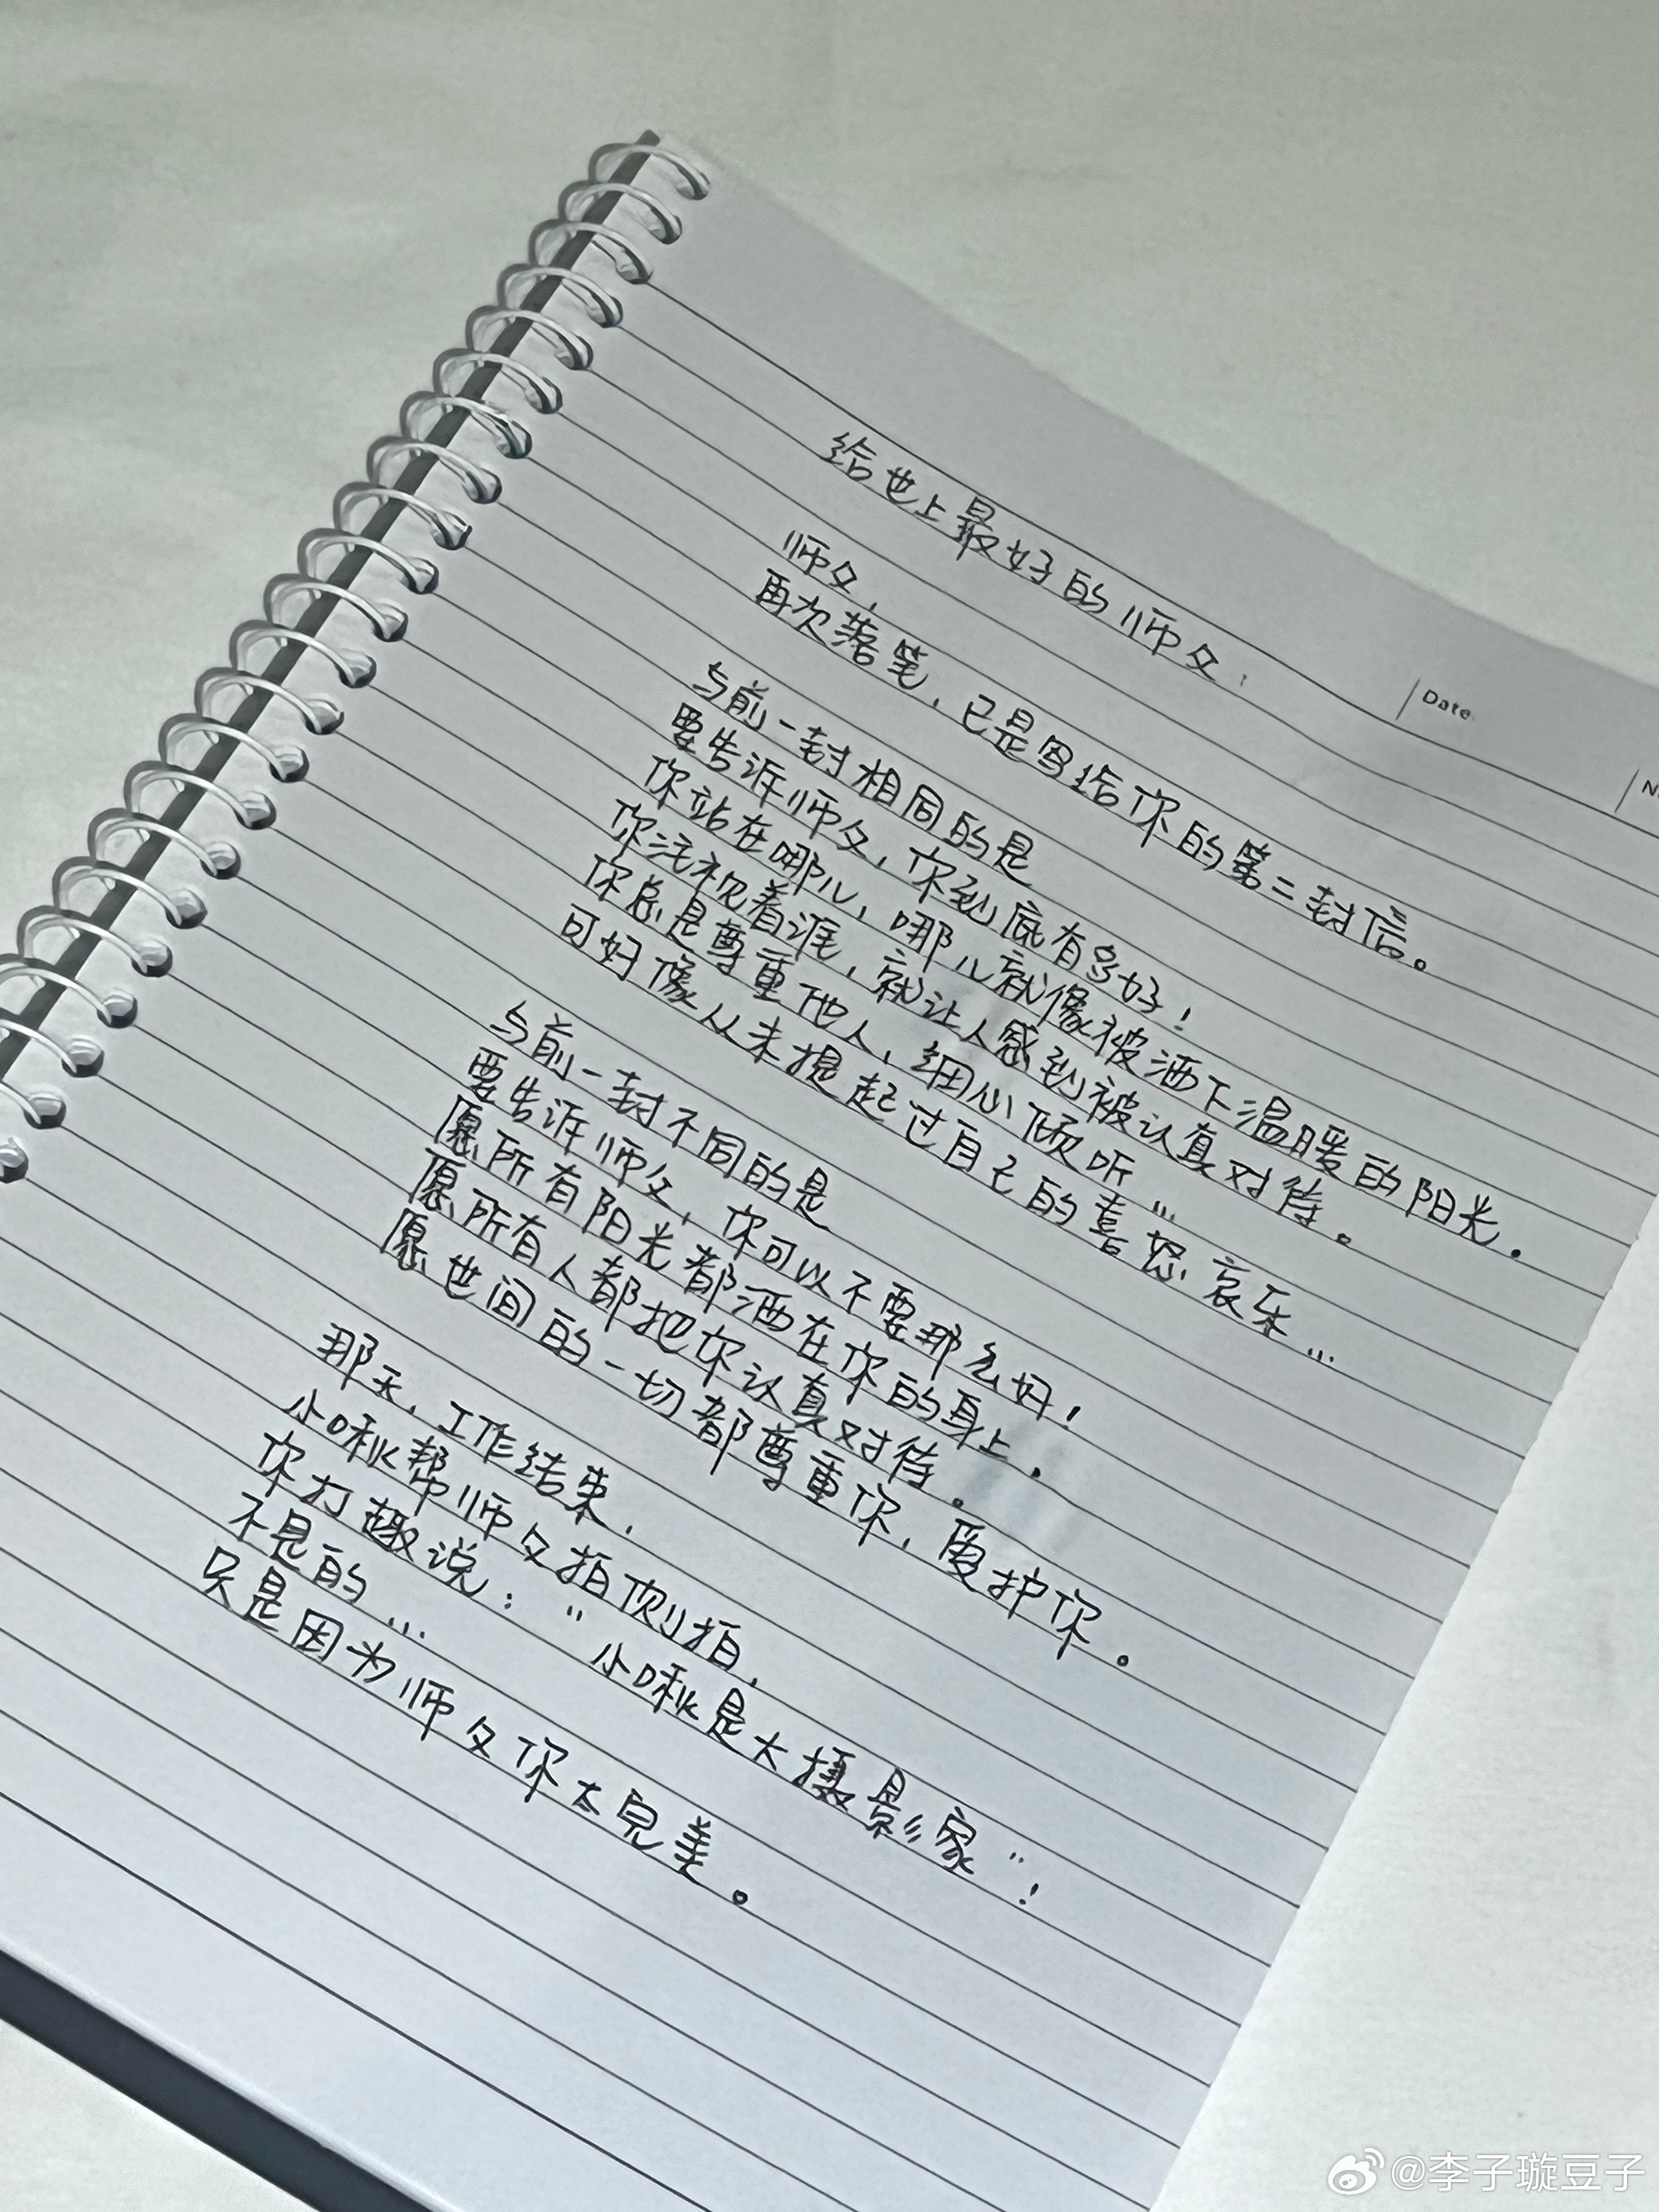 Date.
给世上最好的师父:
师父,
再次落笔,已是写给你的第二封信。
与前一封相同的是
要告诉师父,你到底有多好!
你站在哪儿,哪儿就像被洒下温暖的阳光.
你注视着谁,就让人感到被认真对待。
你总是尊重他人,细心倾听...
可好像从未提起过自己的喜怒哀乐...
与前一封不同的是
要告诉师父,你可以不要那么好!
愿所有阳光都洒在你的身上.
愿所有人都把你认真对待。
愿世间的一切都尊重你,爱护你。
那天,工作结束.
小啾帮师父拍侧拍,
你打趣说:“小啾是大摄影家”!
不是的...
只是因为师父你太完美。
@李子璇豆子